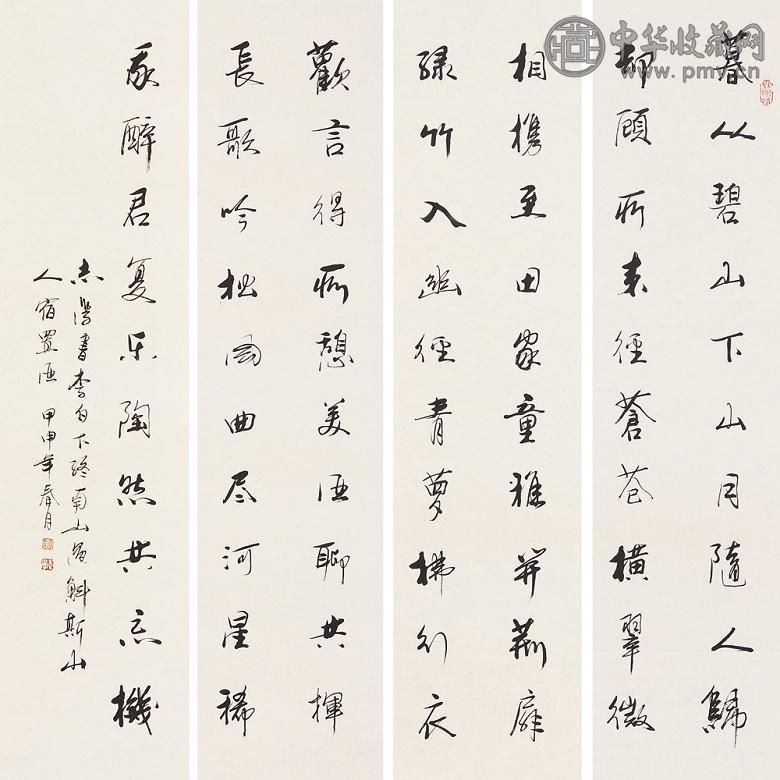 暮从碧山下山月随人歸
却顾所来径蒼苍横翠微
相携至田家童稚开荆扉
绿竹入幽径青萝拂行衣
歡言得所憩美酒聊共揮
長歌吟松风曲尽河星稀
我醉君复乐陶然共忘機
志学书李白下终南山過斛斯山
人宿置酒 甲申年春月
中华收藏网
www.pmyv.cn